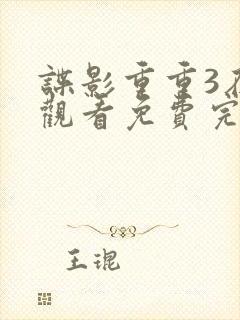 諜影重重3
觀看免費完
王琨